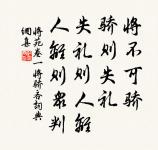 將不可驕
驕則失禮
失禮則人離
人離則眾叛
將苑卷一將驕吝詞典
網